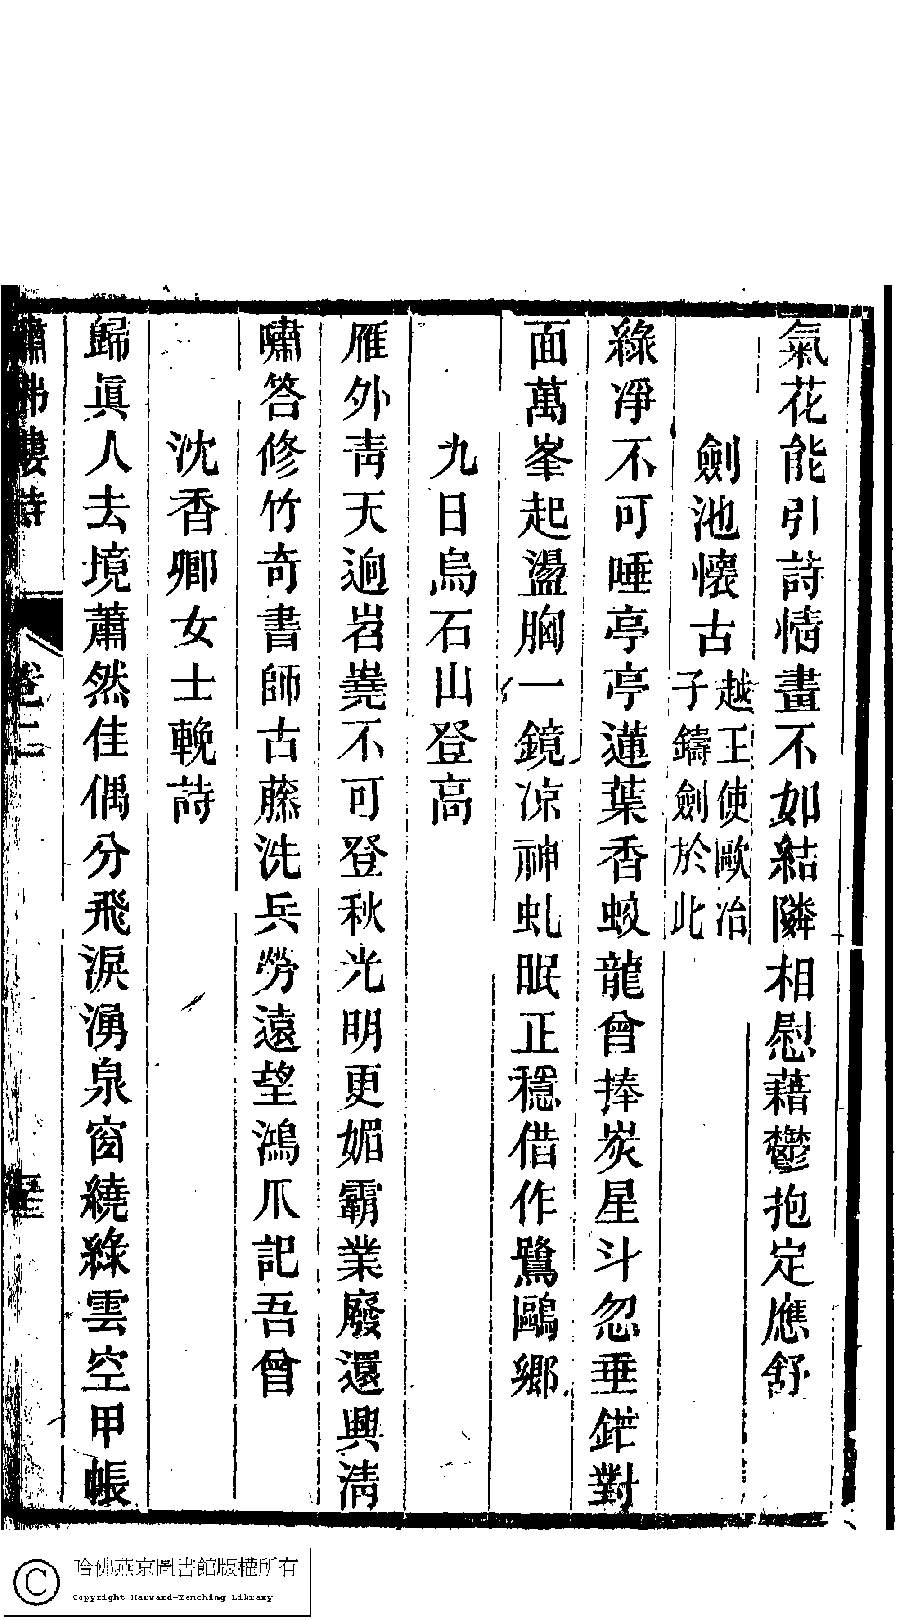 氣花能引詩情畫不如結隣相慰藉鬱抱定應舒
劍池懷古越王使歐冶子鑄劍於此
綠淨不可唾亭亭蓮葉香蛟龍曾捧炭星斗忽垂鋩對
面萬峯起盪胸一鏡凉神虬眠正穩借作鷺鷗鄉
九日烏石山登高
雁外青天逈岧嶤不可登秋光明更媚霸業廢還興淸
嘯答修竹奇書師古藤洗兵勞遠望鴻爪記吾曾
沈香卿女士輓詩
歸眞人去境蕭然佳偶分飛淚湧泉窗繞綠雲空甲帳
繡佛樓詩 卷二
哈佛燕京圖書館版權所有
Copyright Harvard-Yenching Library